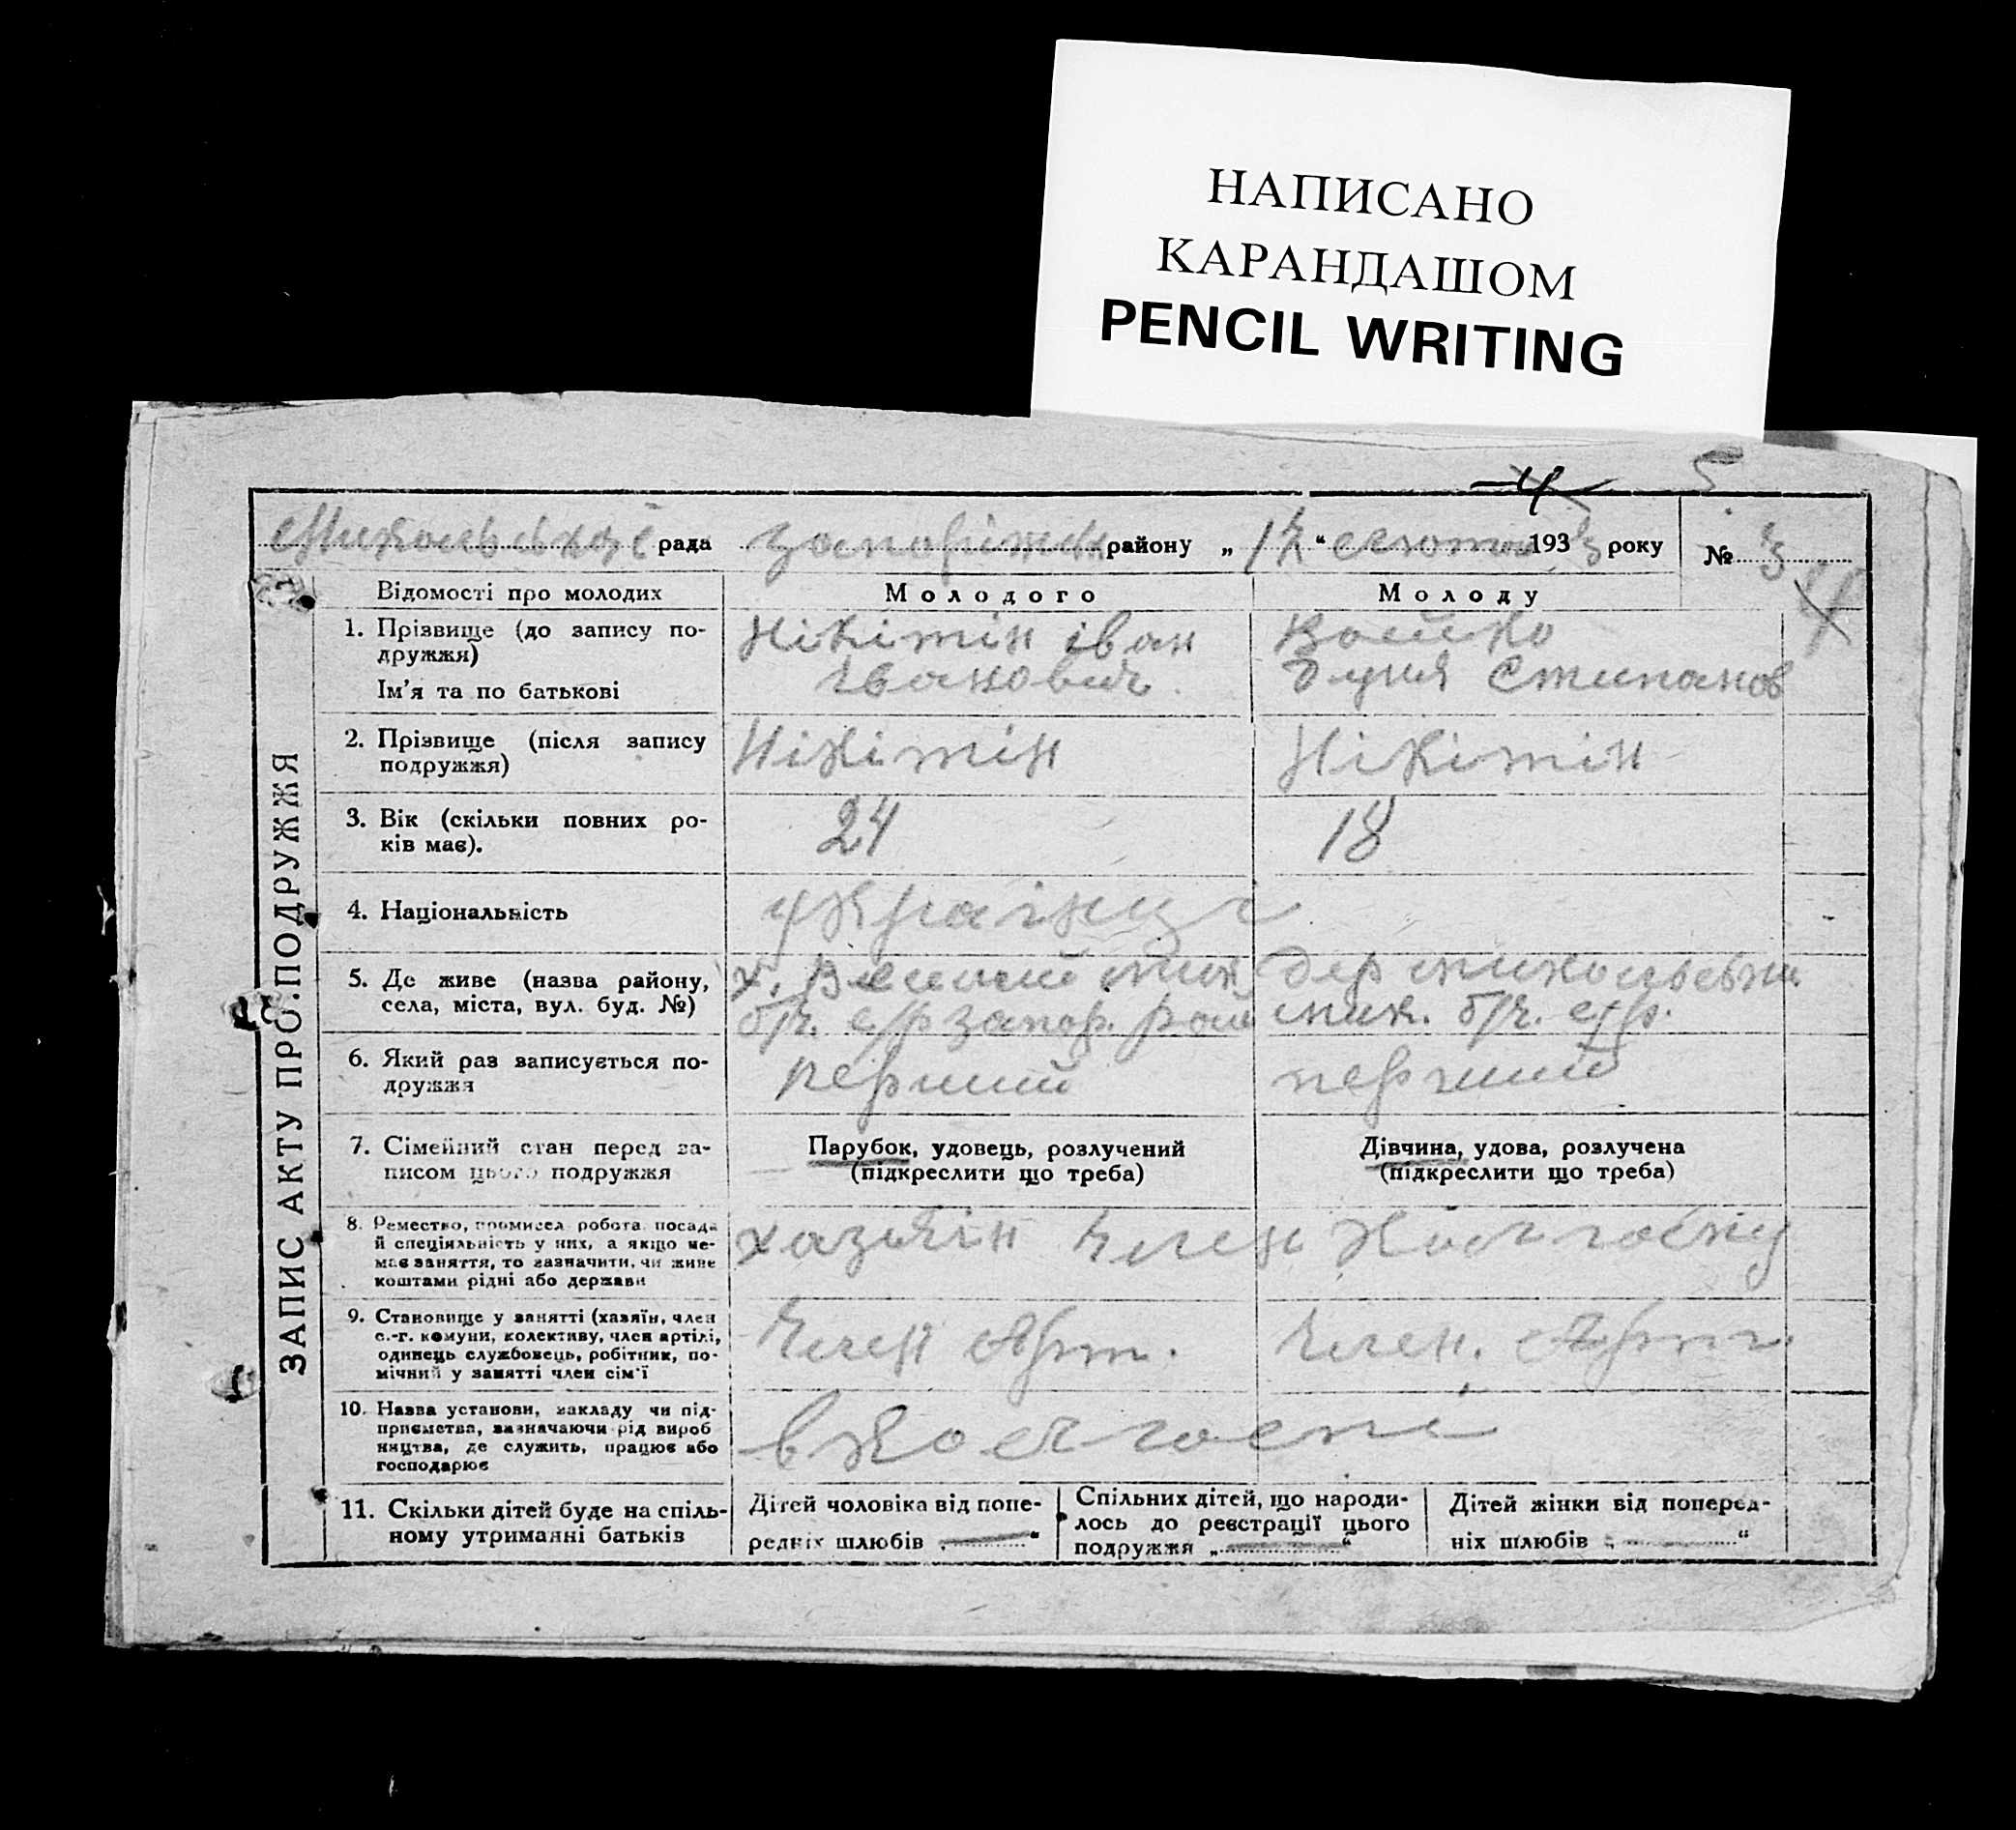 НАПИСАНО
КАРАНДАШОМ
PENCIL WRITING
4 5
рада района „17“ лютого 1933 року № 3
ЗАПИС АКТУ ПРО ПОДРУЖЖЯ
Відомості про молодих Молодого Молоду
1. Прізвище (до запису по-
дружжя)
Ім'я та по батькові
Нікітін іван
іванович
дуня Стипанов
2. Прізвище (після запису
подружжя)
Нікітін Нікітін
3. Вік (скільки повних ро-
ків має).
24 18
4. Національність
українці
5. Де живе (назва району,
села, міста, вул. буд. №)
х. Веселий мик
б/ч. с/р запор. рай
дер
мик. б/ч. с/р.
6. Який раз записується по-
дружжя
перший перший
7. Сімейний стан перед за-
писом цього подружжя
Парубок, удовець, розлучений
(підкреслити що треба)
Дівчина, удова, розлучена
(підкреслити що треба)
8. Ремество, промисел робота посада
й спеціяльність у них, а якщо не-
має заняття, то зазначити, чи живе
коштами рідні або держави
хазяїн член
9. Становище у занятті (хазяїн, член
с.-г. комуни, колективу, член артілі,
одинець службовець, робітник, по-
мічний у занятті член сім'ї
Член Арт. Член. Арті.
10. Назва установи, закладу чи під-
приємства, зазначаючи рід вироб
ництва, де служить, працює або
господарює
11. Скільки дітей буде на спіль-
ному утриманні батьків
Дітей чоловіка від попе-
редніх шлюбів „ “
Спільних дітей, що народи-
лось до реєстрації цього
подружжя „ “
Дітей жінки від поперед-
ніх шлюбів „ “